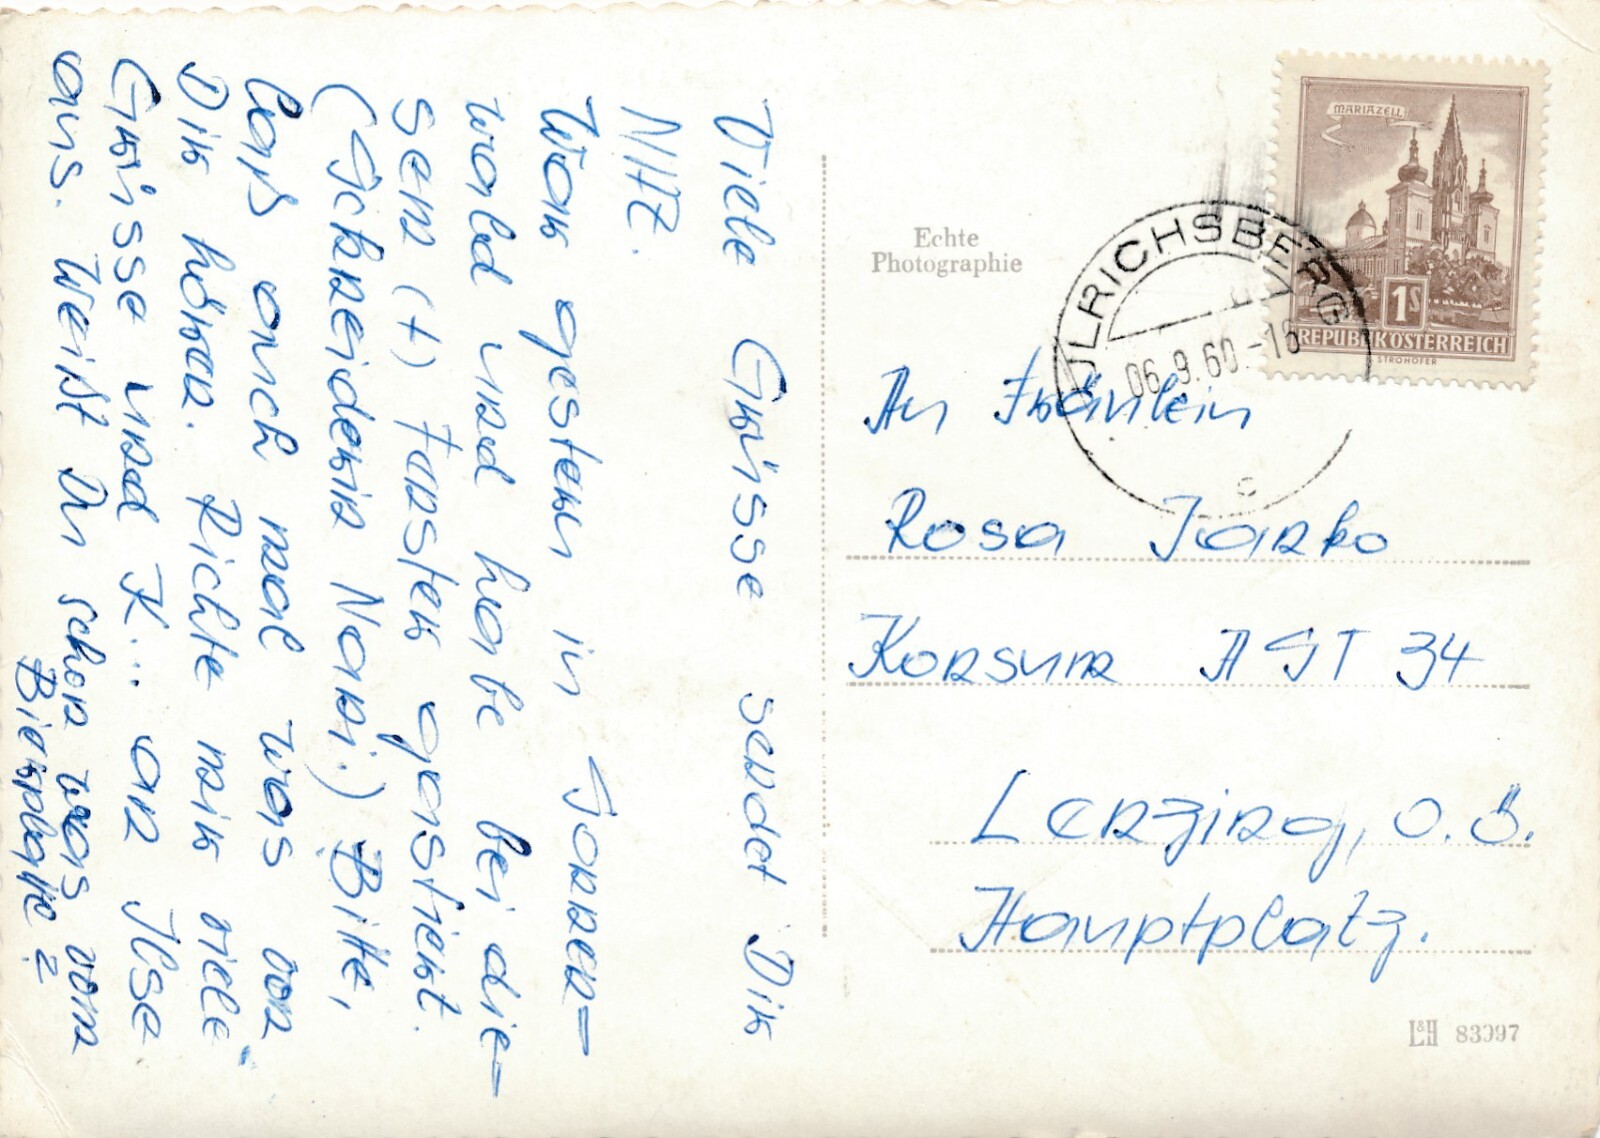 Viele Grüsse sendet Dir
War gestern in Sonnen=
wald und habe bei die-
sem (+) Fenster genstert.
(Schneiderin Nani.) Bitte,
laß auch mal was von
Dir hören. Richte mir viele
Grüsse und K... an Ilse
aus. Weißt Du schon was vom
Echte
Photographie
MARIAZELL
1S
REPUBLIK ÖSTERREICH
STROHOFER
ULRICHSBERG
06.9.60.-16
c
An Fräulein
Rosa Janko
Konsum AGT 34
Lenzing, O.Ö.
Hauptplatz.
L&H 83097